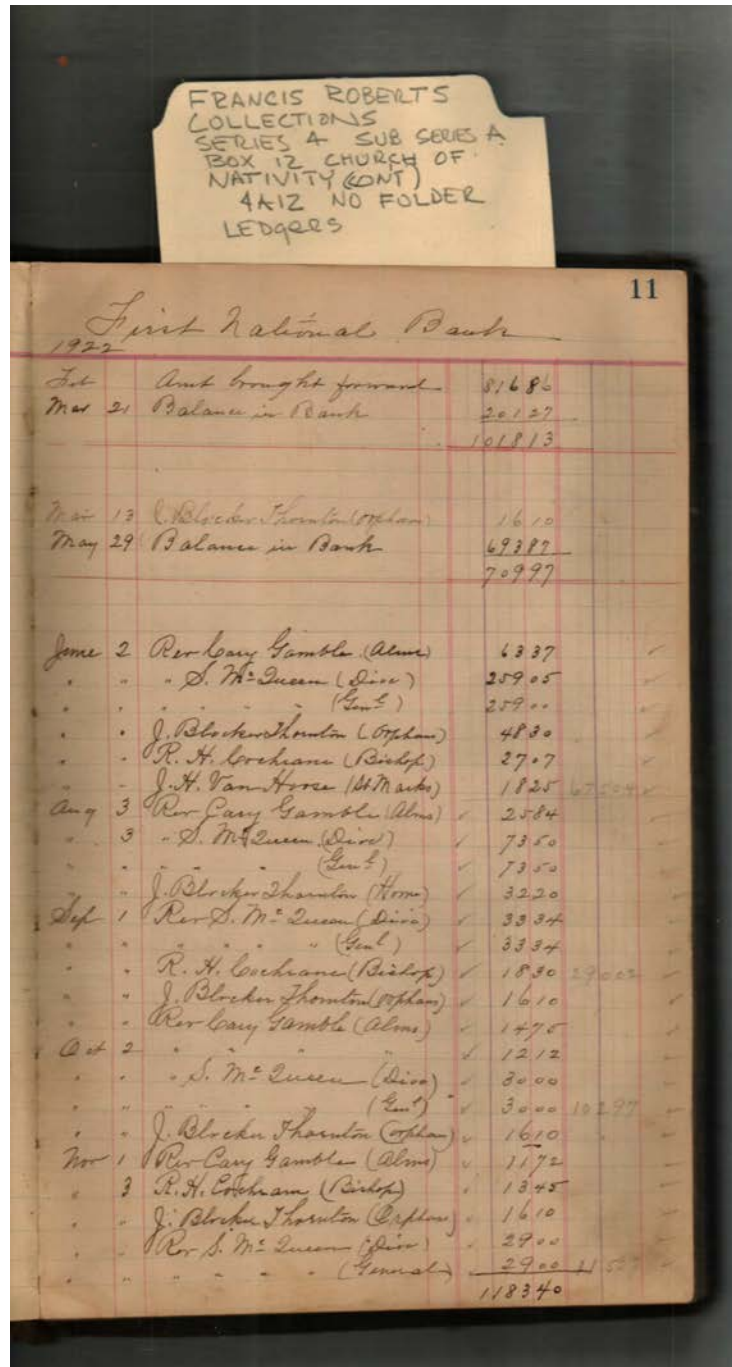 FRANCIS ROBERTS
COLLECTIONS
SERIES 4 SUB SERIES A
BOX 12 CHURCH OF
NATIVITY (CONT)
4A12 NO FOLDER
LEDGERS
11
First National Bank
1922
Feb Amt brought forward 81686
Mar 21 Balance in Bank 20127
101813
Mar 13 J. Blocker Thornton (Orphans) 1610
May 29 Balance in Bank 69387
70997
June 2 Rev Cary Gamble (Alms) 6337
" " " S. Mc Queen (Dioc) 25905
" " " " " (Genl) 25900
" " J. Blocker Thornton (Orphans) 4830
" " R. H. Cochrane (Bishop) 2707
" " J. H. Van Hoose (St Marks) 1825 67504
Aug 3 Rev Cary Gamble (Alms) 2584
" 3 " S. Mc Queen (Dioc) 7350
" " " " " (Genl) 7350
" " J. Blocker Thornton (Home) 3220
Sep 1 Rev S. Mc Queen (Dioc) 3334
" " " " " " (Genl) 3334
" " R. H. Cochrane (Bishop) 1830 29002
" " J. Blocker Thornton (Orphans) 1610
" " Rev Cary Gamble (Alms) 1475
Oct 2 " " " " 1212
" " " S. Mc Queen (Dioc) 3000
" " " " " (Genl) 3000 10297
" " J. Blocker Thornton (Orphan) 1610
Nov 1 Rev Cary Gamble (Alms) 1172
" 3 R. H. Cochram (Bishop) 1345
" " J. Blocker Thornton (Orphans) 1610
" " Rev S. Mc Queen (Dioc) 2900
" " " " " " (General) 2900
118340